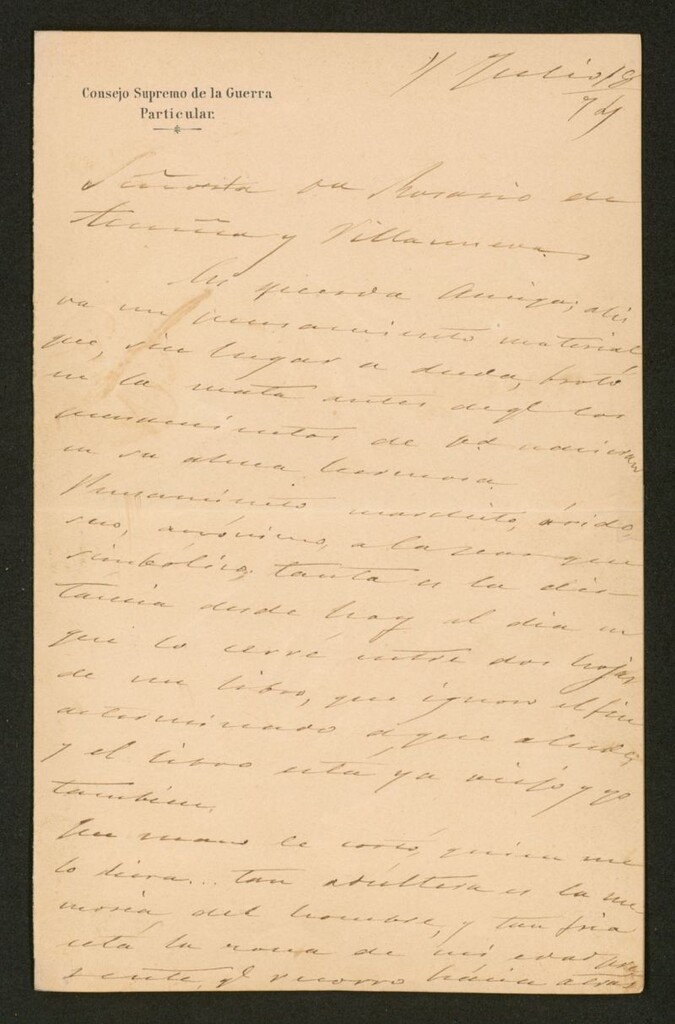 Consejo Supremo de la Guerra
Particular.
Julio 18
Señorita Da Rosario de
Acuña y Villanueva
Mi querida Amiga; ahí
va un pensamiento material
que, sin lugar a duda, brotó
en la mata antes de ql los
pensamientos de Vd nacieran
en su alma hermosa.
Pensamiento marchito, árido,
seco, anónimo, a la vez que
simbólico; tanta es la dis-
tancia desde hoy al día en
que lo cerré entre dos hojas
de un libro, que ignoro el fin
determinado a que aluda,
y el libro está ya viejo y yo
también.
Que mano le cortó, quien me
lo diera... tan adúltera es la me
moria del hombre, y tan fria
está la zona de mi edad pre
sente, ql recorro hácia atras